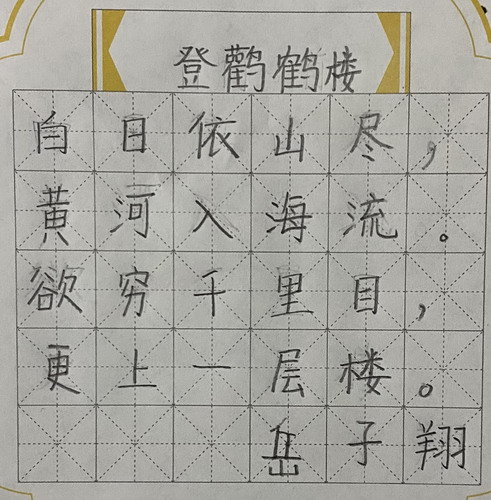 登鹳鹤楼
白日依山尽，
黄河入海流。
欲穷千里目，
更上一层楼。
岳子翔